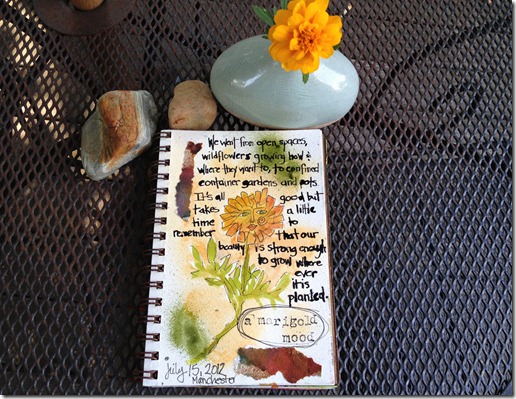 We went from open spaces,
wildflowers growing how &
where they want to, to confined
container gardens and pots.
It's all good but
takes a little
time to
remember that our
beauty is strong enough
to grow where
ever
it is
planted.
a marigold
mood
july 15, 2012
Manchester